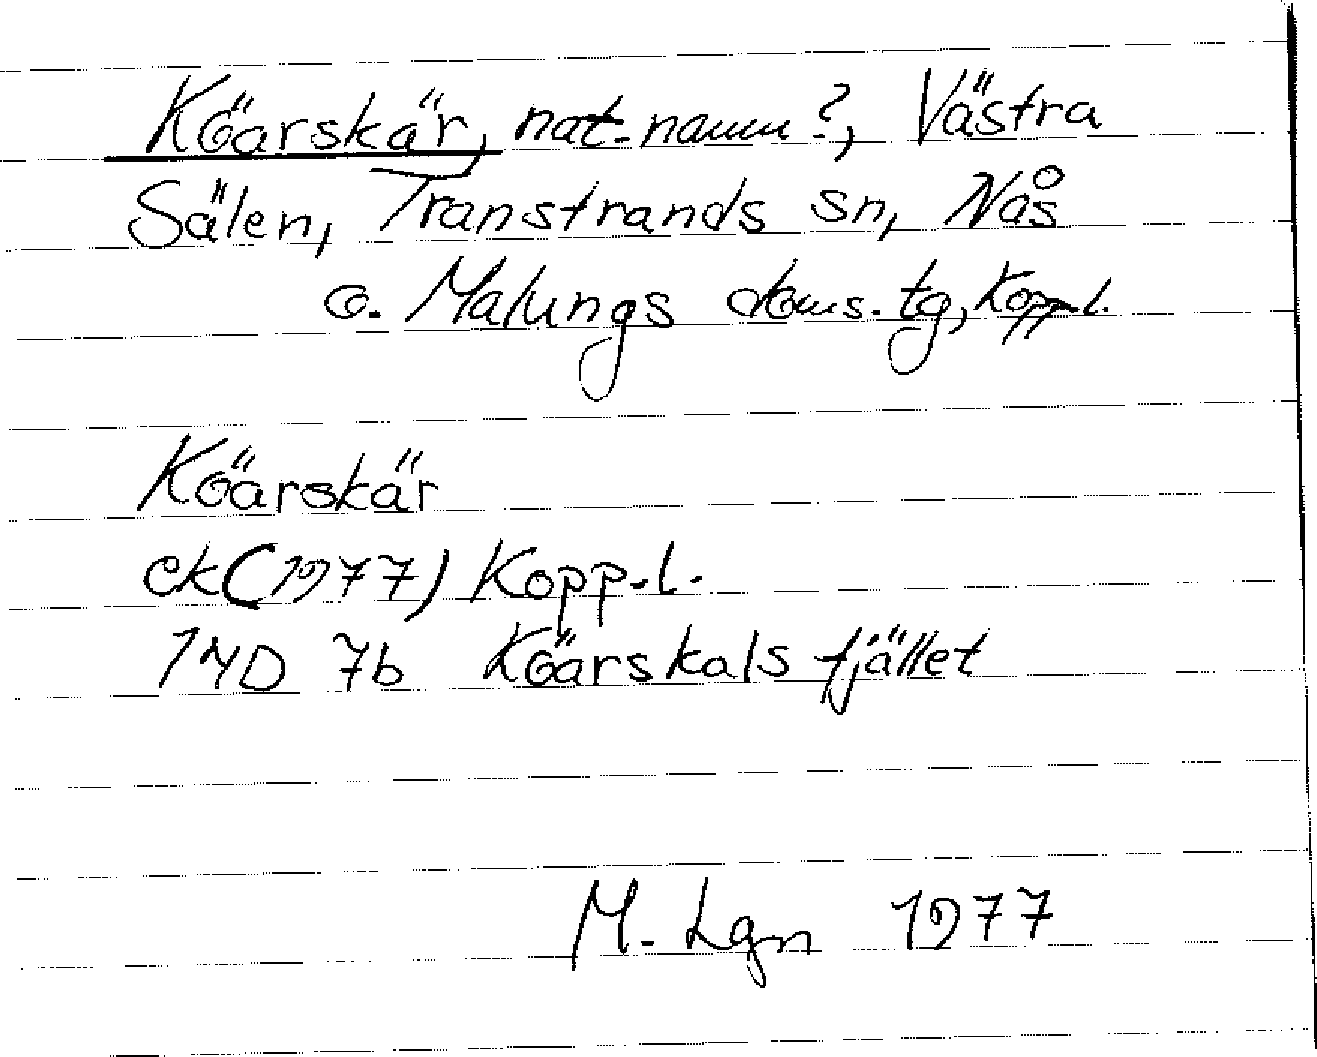 Köarskär, nat.namn?, Västra
Sälen, Transtrands sn, Nås
o. Malungs doms. tg, Kopp. l.
Köarskär
ek (1977) Kopp. l.
13D 7b Köarskals fjället
M. Lgn 1977